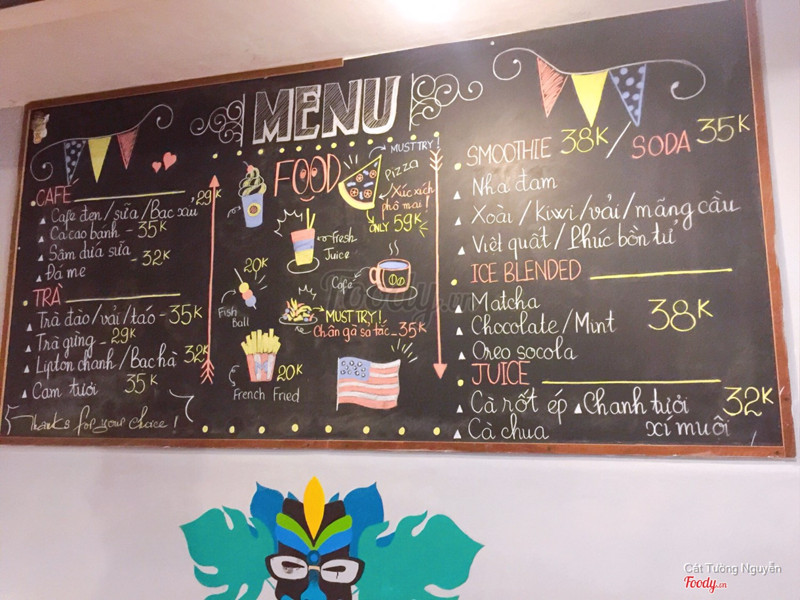 MENU
CAFE
Cafe đen/sữa/Bạc xỉu 29K
Cacao bánh - 35K
Sâm dứa sữa
Đá me 32K
TRÀ
Trà đào/vải/táo - 35K
Trà gừng - 29K
Lipton chanh/Bạc hà 32K
Cam tươi 35K
Thanks for your choice!
FOOD
MUST TRY!
Pizza
Xúc xích
phô mai!
ONLY 59K
Fresh
Juice
Cafe
20K
Fish
Ball
MUST TRY!
Chân gà sả tắc 35K
20K
French Fried
SMOOTHIE 38K / SODA 35K
Nha đam
Xoài/kiwi/vải/mãng cầu
Việt quất/Phúc bồn tử
ICE BLENDED
Matcha
Chocolate/Mint 38K
Oreo socola
JUICE
Cà rốt ép Chanh tươi 32K
Cà chua xí muội
Foody.vn
Cát Tường Nguyễn
Foody.vn